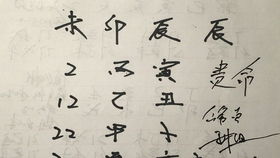 未 卯 辰 辰
2 丙 寅 贵命
12 乙 丑
22 甲 子